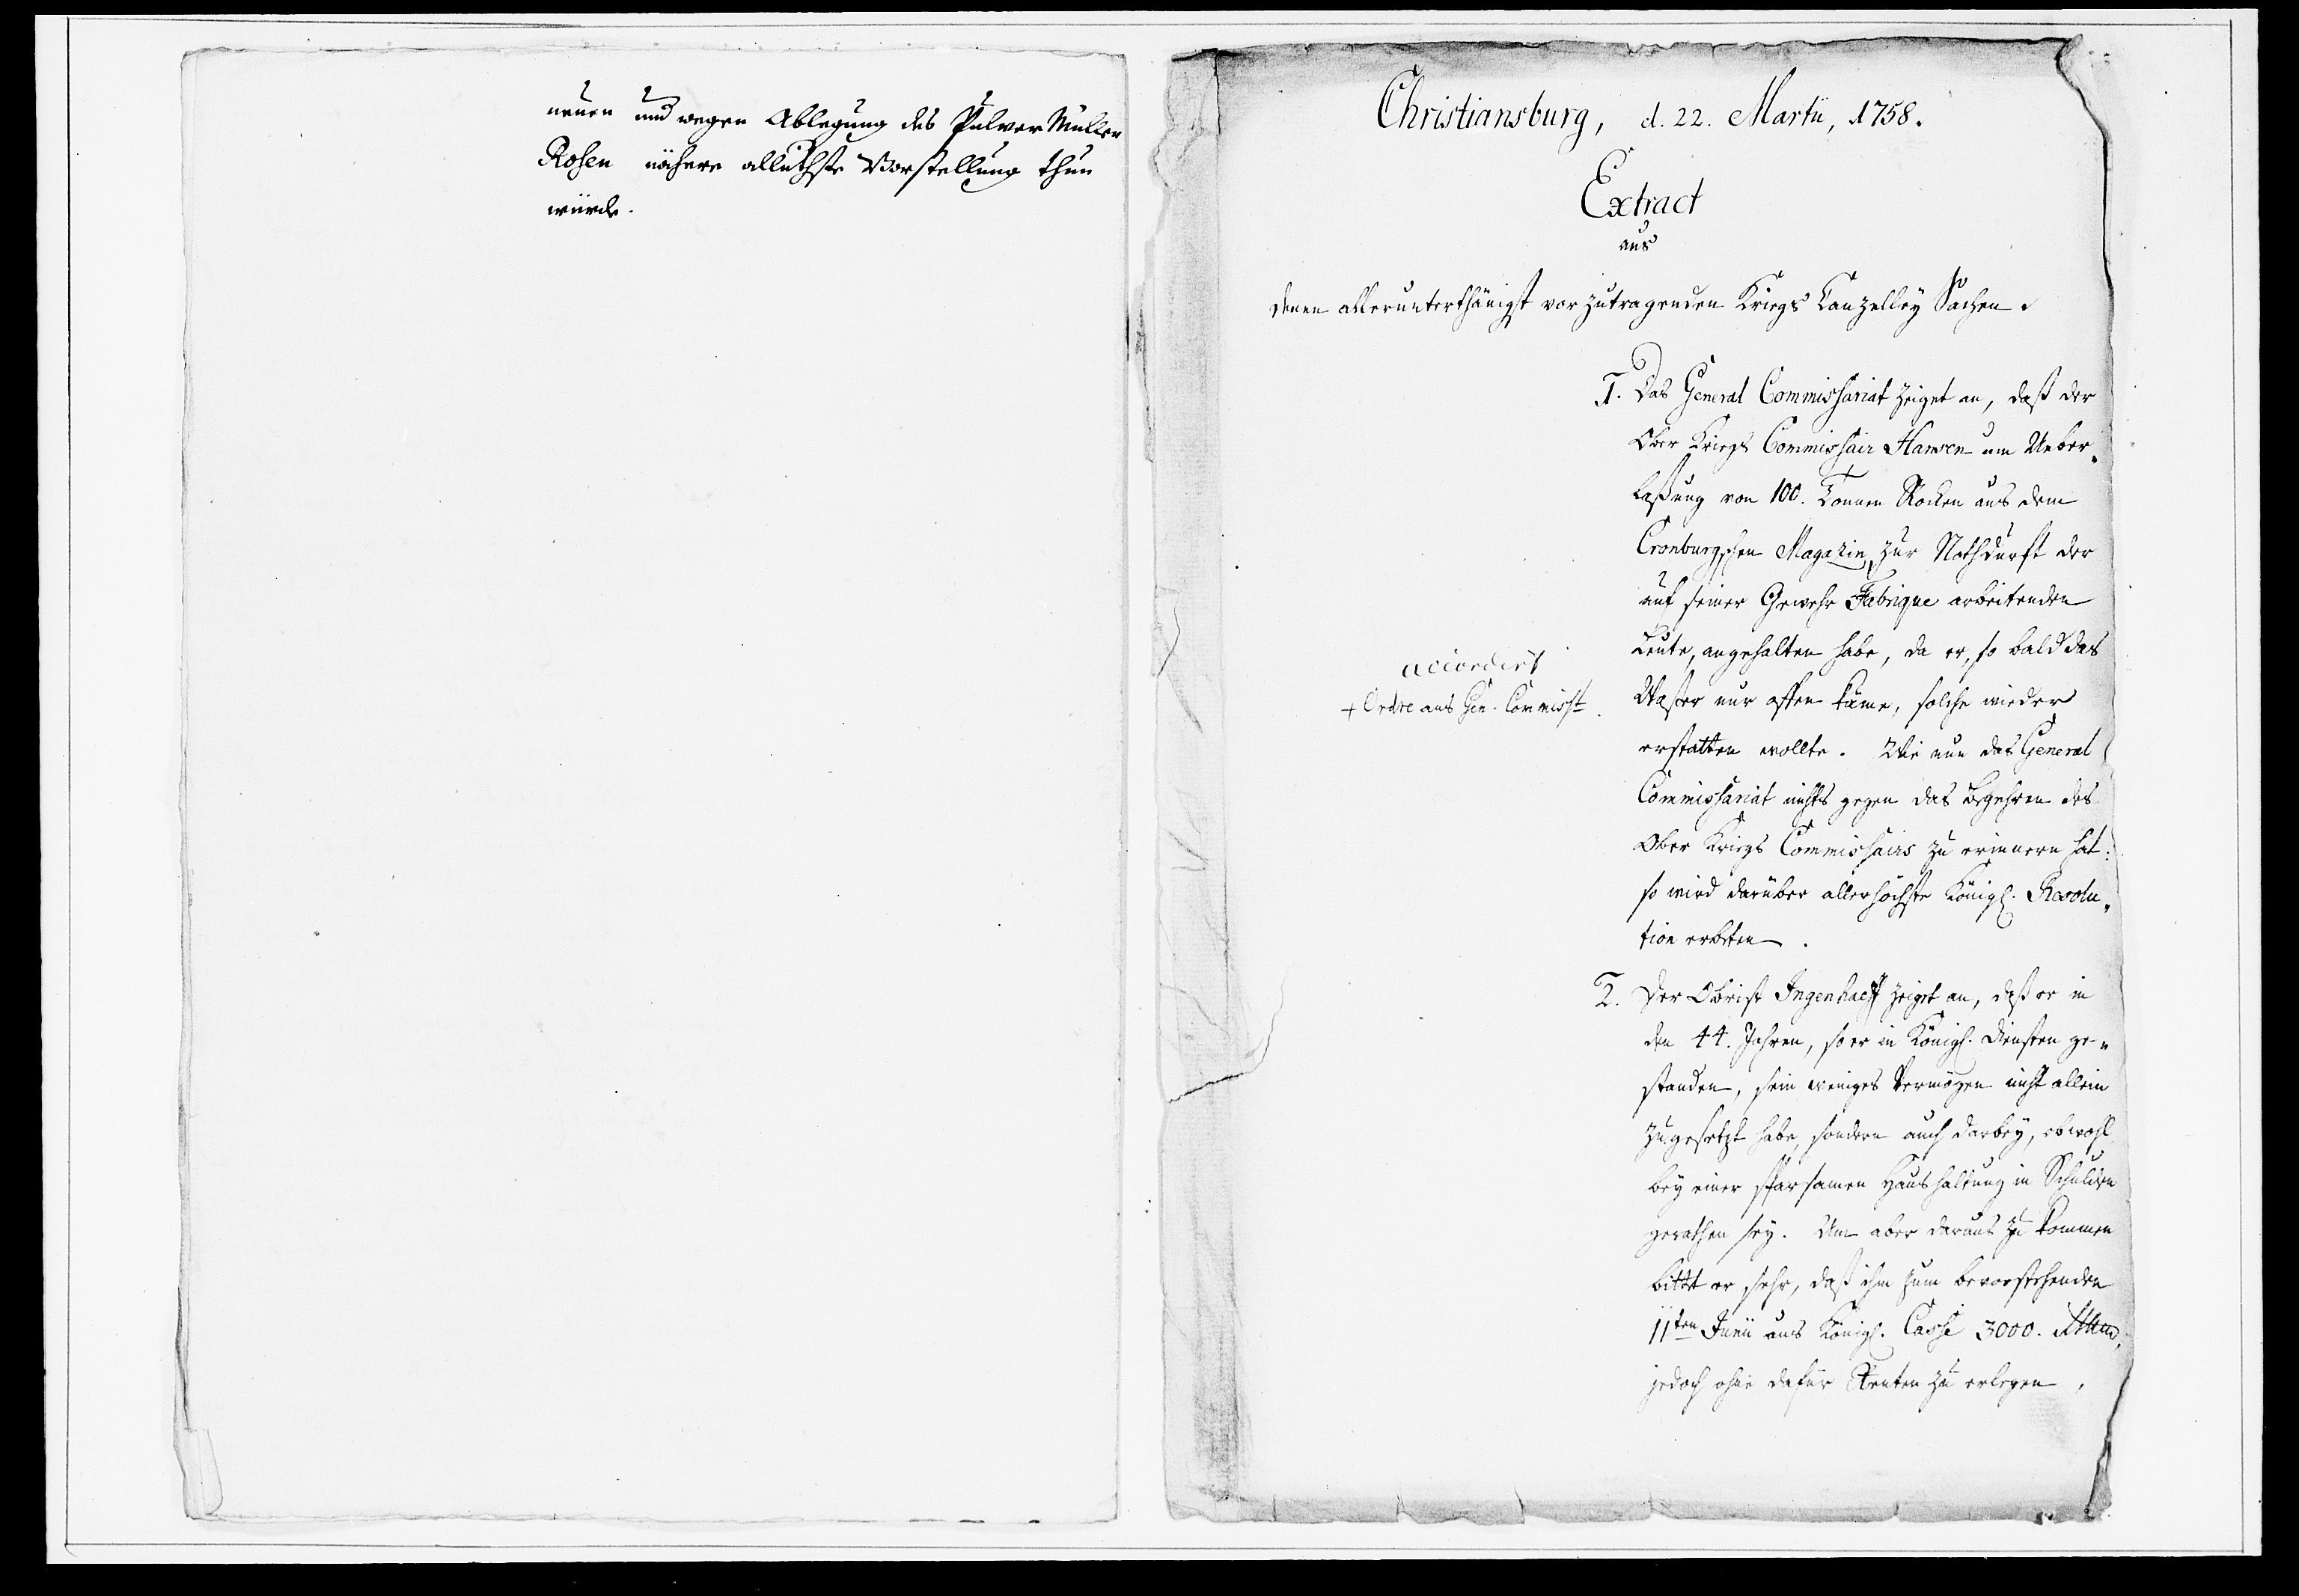 neuen und wegen Ablegung des Pulver Müller
Rosen nähere allerthste Vorstellung thun
würde.
Christiansburg, d. 22. Martii, 1758.
Extract
aus
denen allerunterthänigst vorzutragenden Kriegs Canzelley Sachen.
1. Das General Commissariat zeiget an, daß der
Ober Kriegs Commissair Hansen um Ueber-
laßung von 100. Tonnen Rocken aus dem
Cronburgschen Magazin, zur Nothdurft der
auf seiner Gewehr Fabrique arbeitenden
Leute, angehalten habe, da er, so bald das
Waßer nur offen käme, solche wieder
erstatten wollte. Wie nun das General
Commissariat nichts gegen das Begehren des
Ober Kriegs Commissairs zu erinnern hat:
so wird darüber allerhöchste Königl. Resolu-
tion erbeten.
accordirt
+ Ordre ans Gen. Commisst.
2. Der Obrist Ingenhaeff zeiget an, daß er in
den 44. Jahren, so er in Königl. Diensten ge-
standen, sein weniges Vermögen nicht allein
zugesetzt habe, sondern auch darbey, obwohl
bey einer sparsamen Haushaltung in Schulden
gerathen sey. Um aber daraus zu kommen
bittet er sehr, daß ihm zum bevorstehenden
11ten Junii aus Königl. Casse 3000. Rthlr.
jedoch ohne dafür Renten zu erlegen,